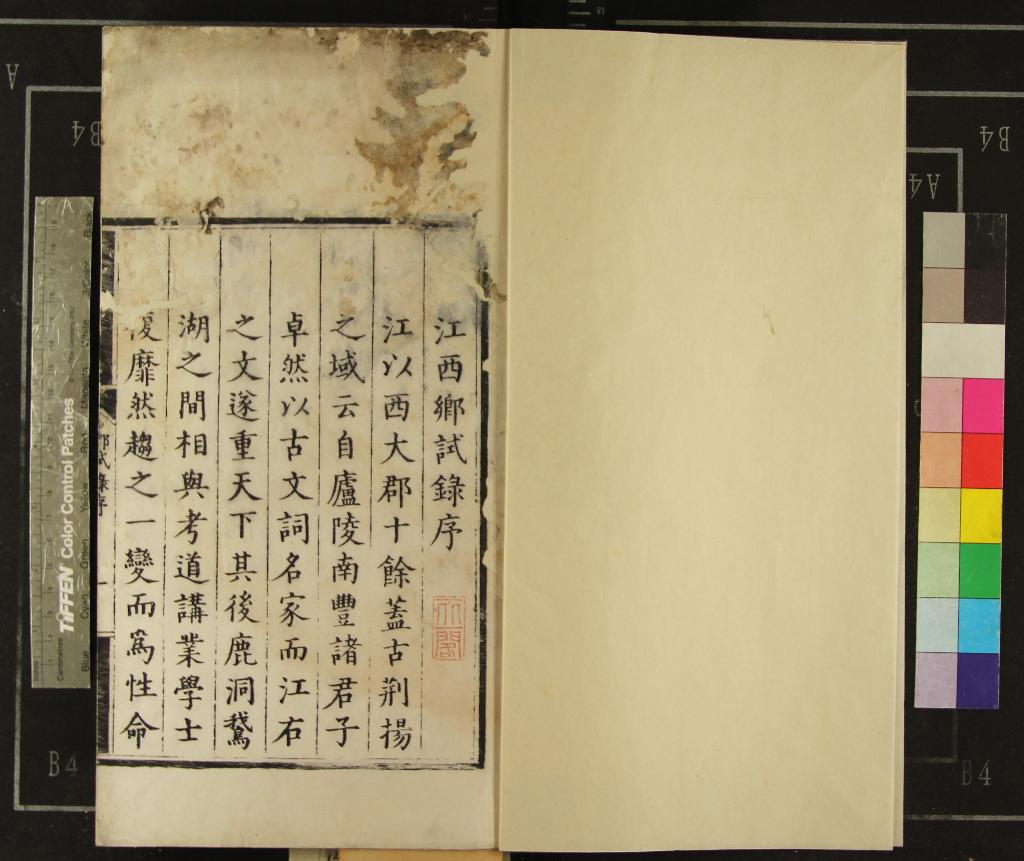 江西鄉試錄序
江以西大郡十餘蓋古荆揚
之域云自廬陵南豐諸君子
卓然以古文詞名家而江右
之文遂重天下其後鹿洞鵞
湖之間相與考道講業學士
復靡然趨之一變而爲性命
鄉試錄序
一
TIFFEN Color Control Patches
Centimetres
Blue
Cyan
Green
Yellow
Red
Magenta
White
3/Color
Black
A
B4
B4
A4
B4
B4